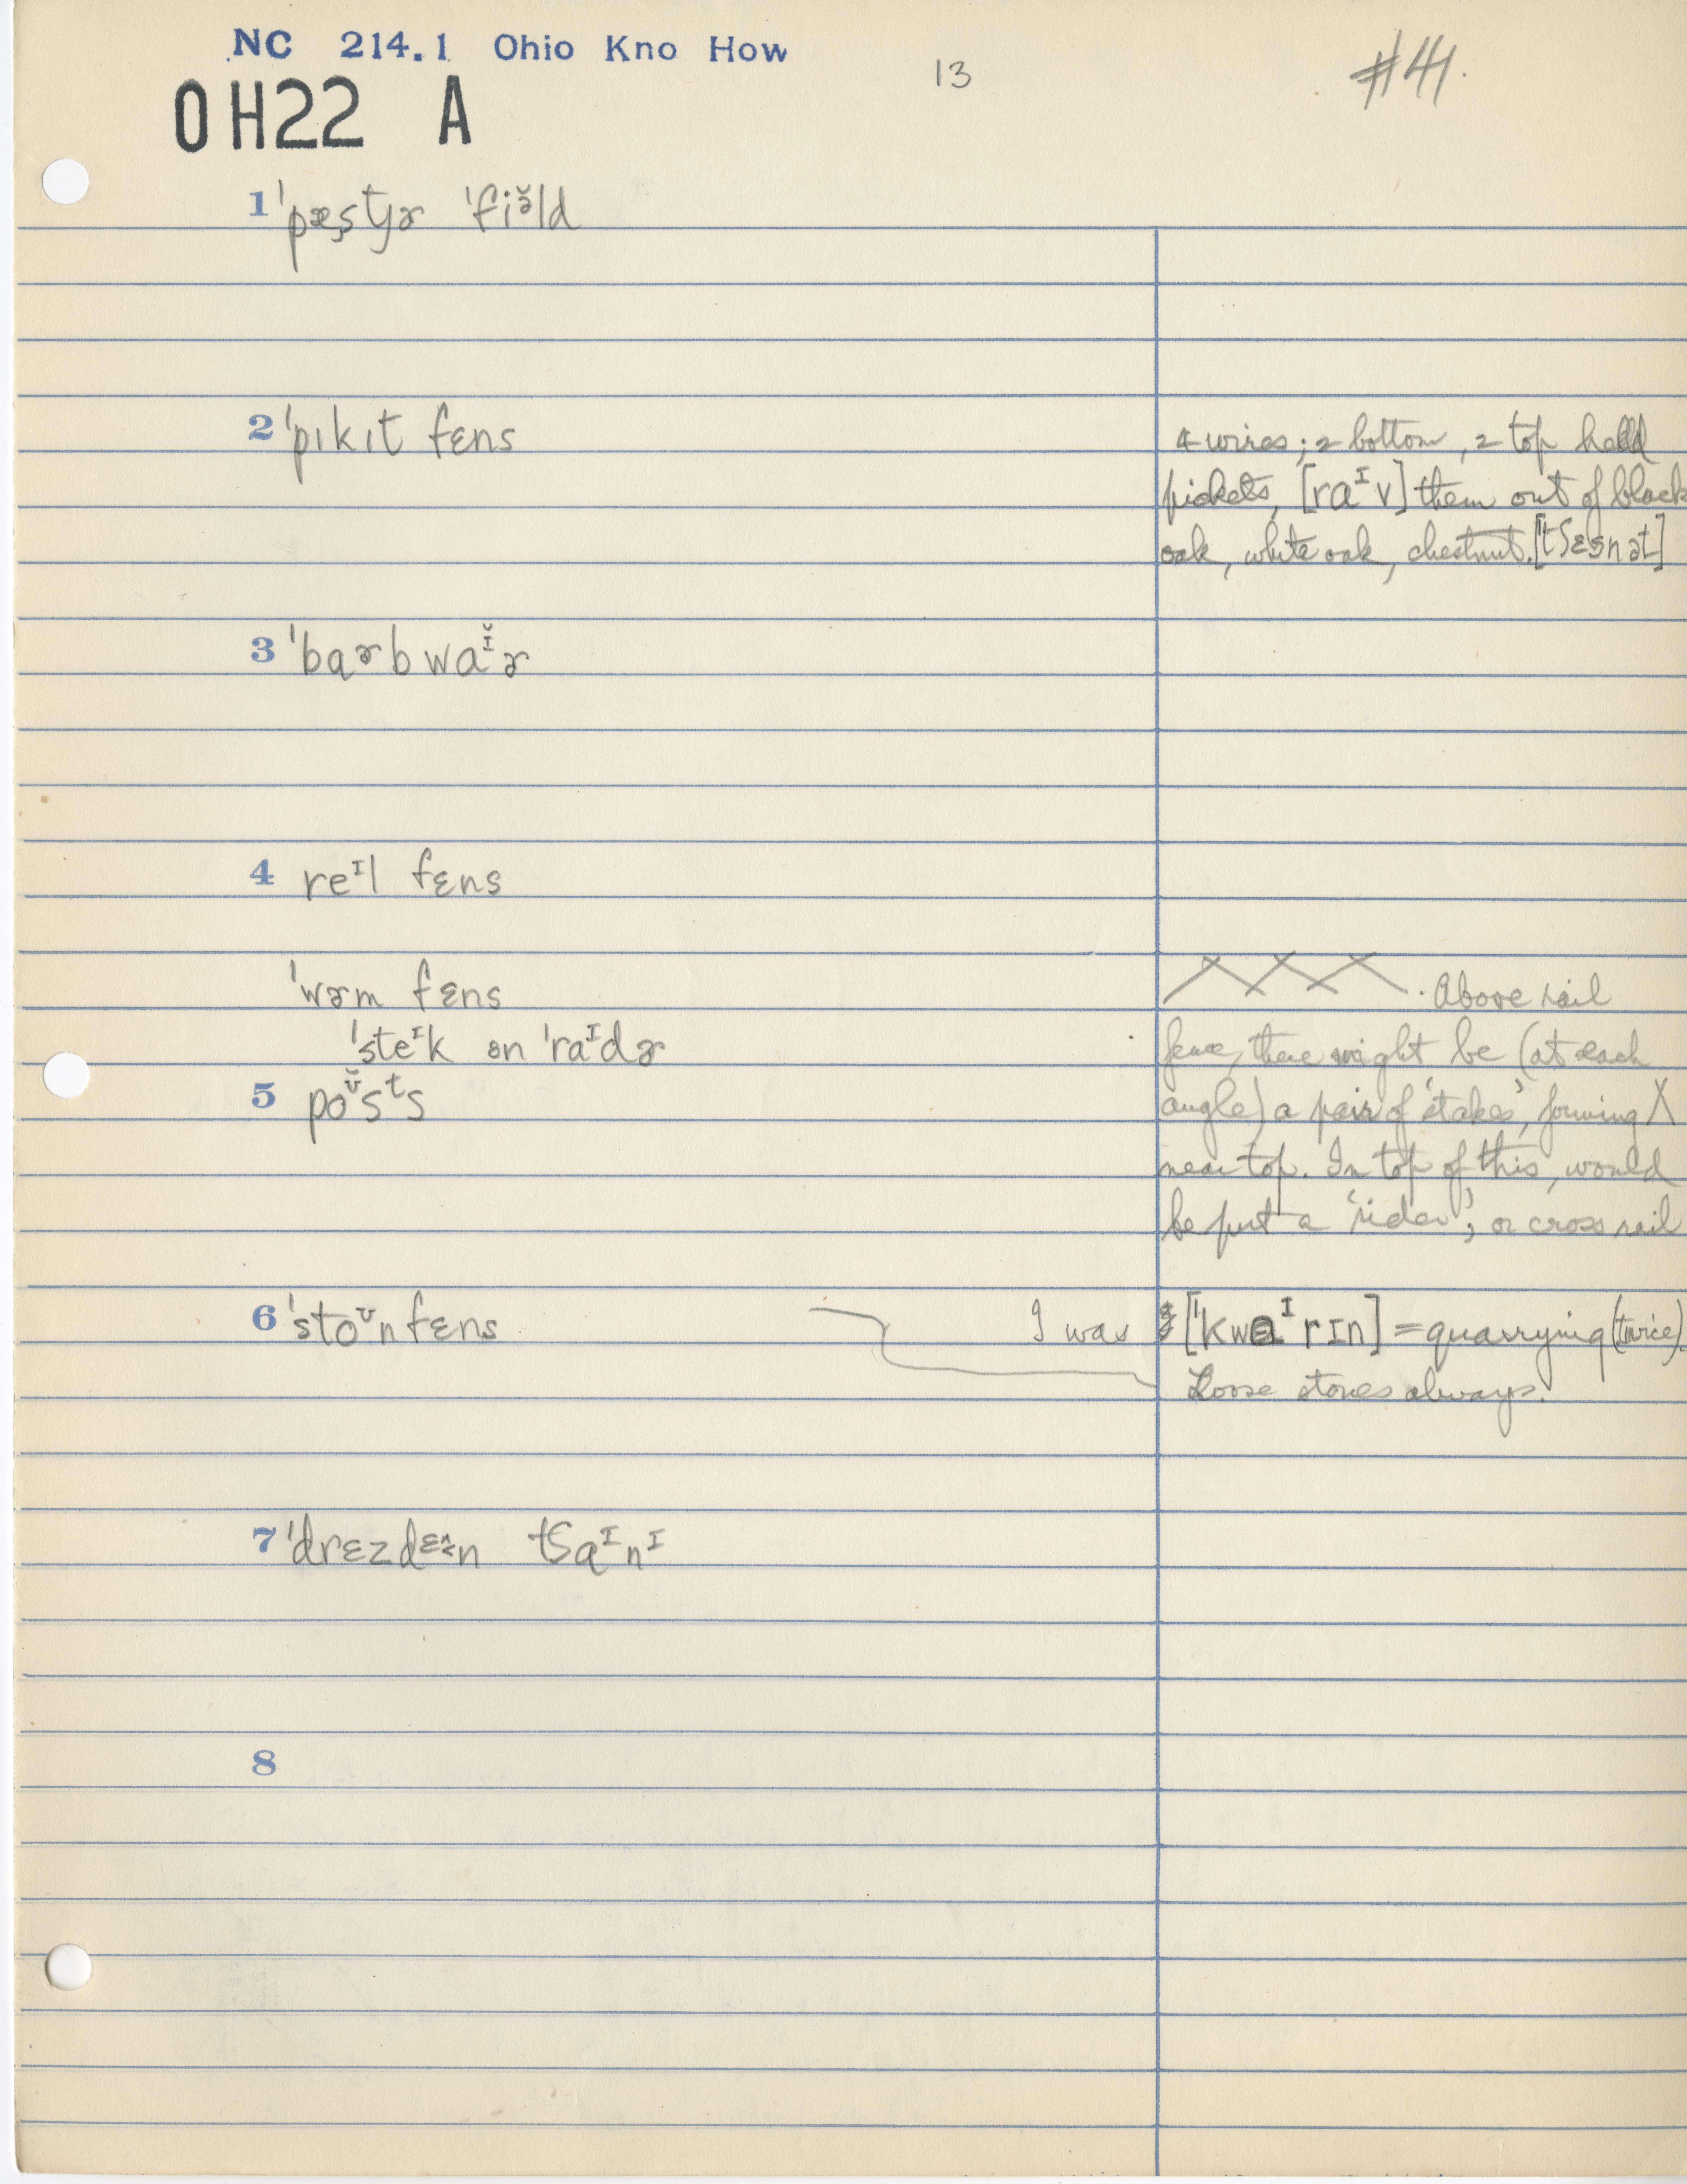 NC 214.1 Ohio Kno How
13
#41.
OH22 A
1 ˈpæstʃɚ ˈfiə̆ld
2 ˈpɪkɪt fɛns
4 wires; 2 bottom, 2 top held
pickets, [raᴵv] them out of black
oak, white oak, chestnut. [ˈtʃɛsnət]
3 ˈbɑɚbwaᴵ̆ɚ
4 reᴵl fɛns
ˈwɚm fɛns
. Above rail
ˈsteᴵk ən ˈraᴵdɚ
fence, there might be (at each
5 poᶷ̆sᵗs
angle) a pair of 'stakes', forming X
near top. In top of this, would
be put a 'rider', or cross rail
6 ˈstoᶷ̆nfɛns
I was [ˈkwɑᴵrɪn] = quarrying (twice).
Loose stones always.
7 ˈdrɛzdɛn tʃɑᴵnᴵ
8